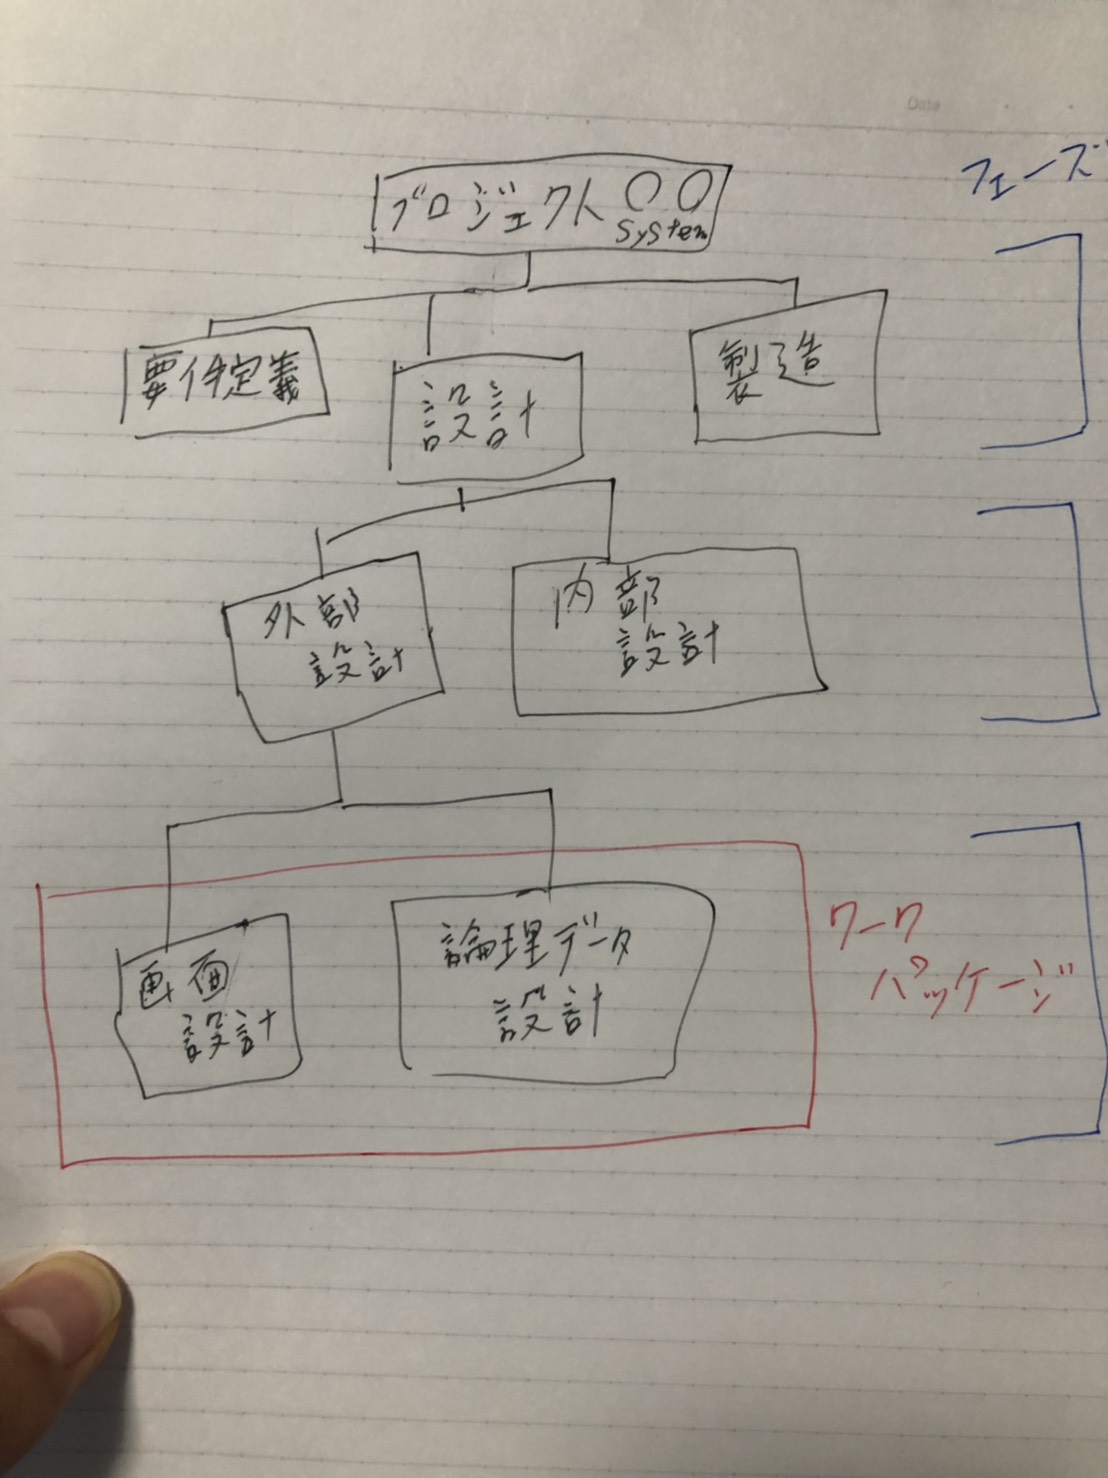 Date
フェーズ
プロジェクト〇〇
System
要件定義
設計
製造
外部
設計
内部
設計
画面
設計
論理データ
設計
ワーク
パッケージ